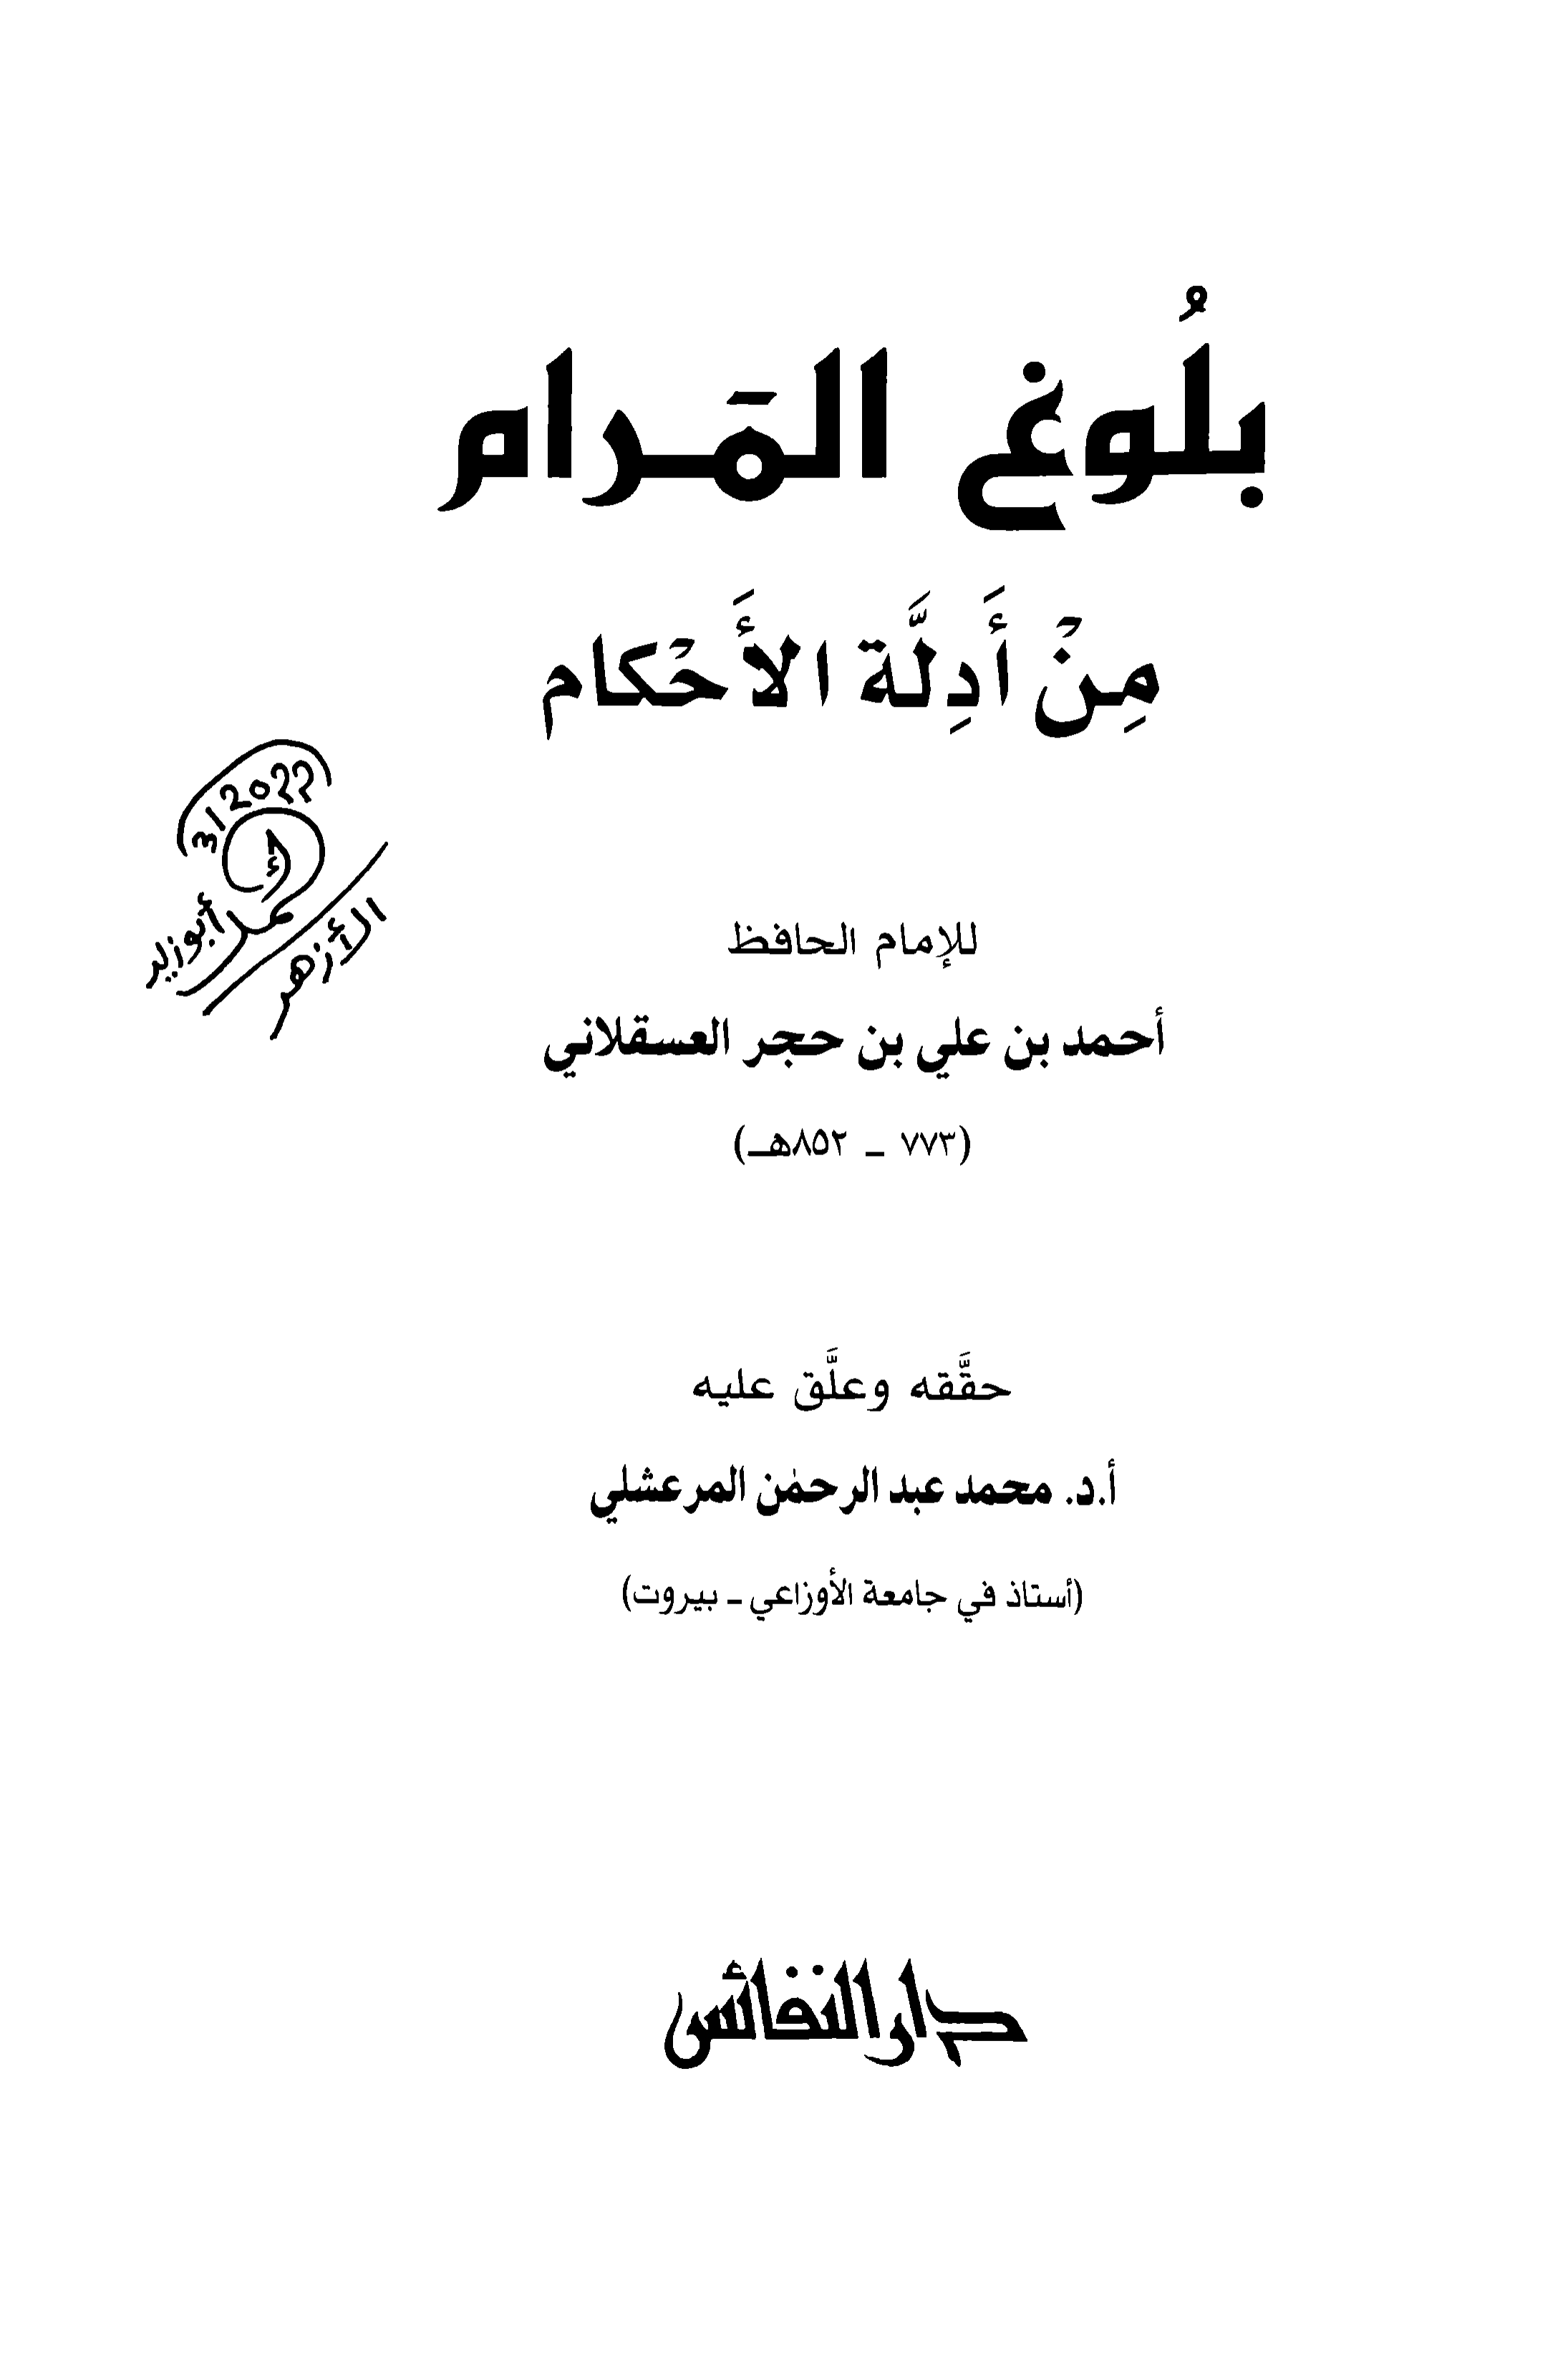 بلُوغ المَرام
مِنْ أَدِلَّة الأَحْكام
3/2022
أحمد أبوزيد
الأزهر
للإمام الحافظ
أحمد بن علي بن حجر العسقلاني
(٧٧٣ ـ ٨٥٢هـ)
حقَّقه وعلَّق عليه
أ.د. محمد عبد الرحمٰن المرعشلي
(أستاذ في جامعة الأوزاعي ـ بيروت)
دار النفائس